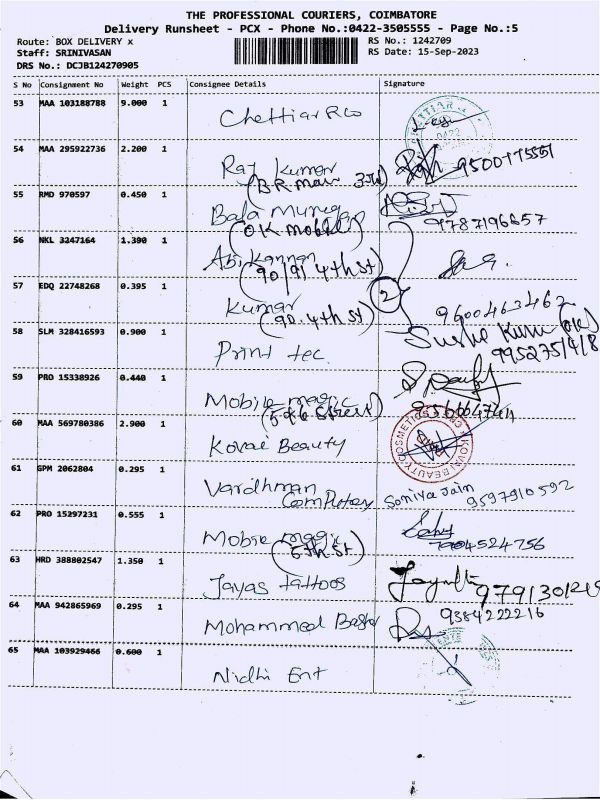 THE PROFESSIONAL COURIERS, COIMBATORE
Delivery Runsheet - PCX - Phone No.:0422-3505555 - Page No.:5
Route: BOX DELIVERY x RS No.: 1242709
Staff: SRINIVASAN RS Date: 15-Sep-2023
DRS No.: DCJB124270905
S No Consignment No Weight PCS Consignee Details Signature
53 MAA 103188788 9.000 1 Chettiar
0422
54 MAA 295922736 2.200 1 Raj Kumar
(BR Man 3rd)
55 RMD 970597 0.450 1 Bala
9787196657
(OK Mobile)
56 NKL 3247164 1.390 1 Abi Kannan
(90/91 4th St)
57 EDQ 22748268 0.395 1 Kumar 2 9600463462
(90. 4th St)
58 SLM 328416593 0.900 1 Print tec.
59 PRO 15338926 0.440 1 Mobile magic
(5th Street)
60 MAA 569780386 2.900 1 Kovai Beauty
KOVAI BEAUTY COSMETICS
61 GPM 2062804 0.295 1 Vardhman
Computer Soniya Jain 9597910592
62 PRO 15297231 0.555 1 Mobile magic
7904524756
(5th St)
63 HRD 388802547 1.350 1 Jayas tattoos
64 MAA 942865969 0.295 1 Mohammed 9384222216
65 MAA 103929466 0.600 1 Nidhi Ent